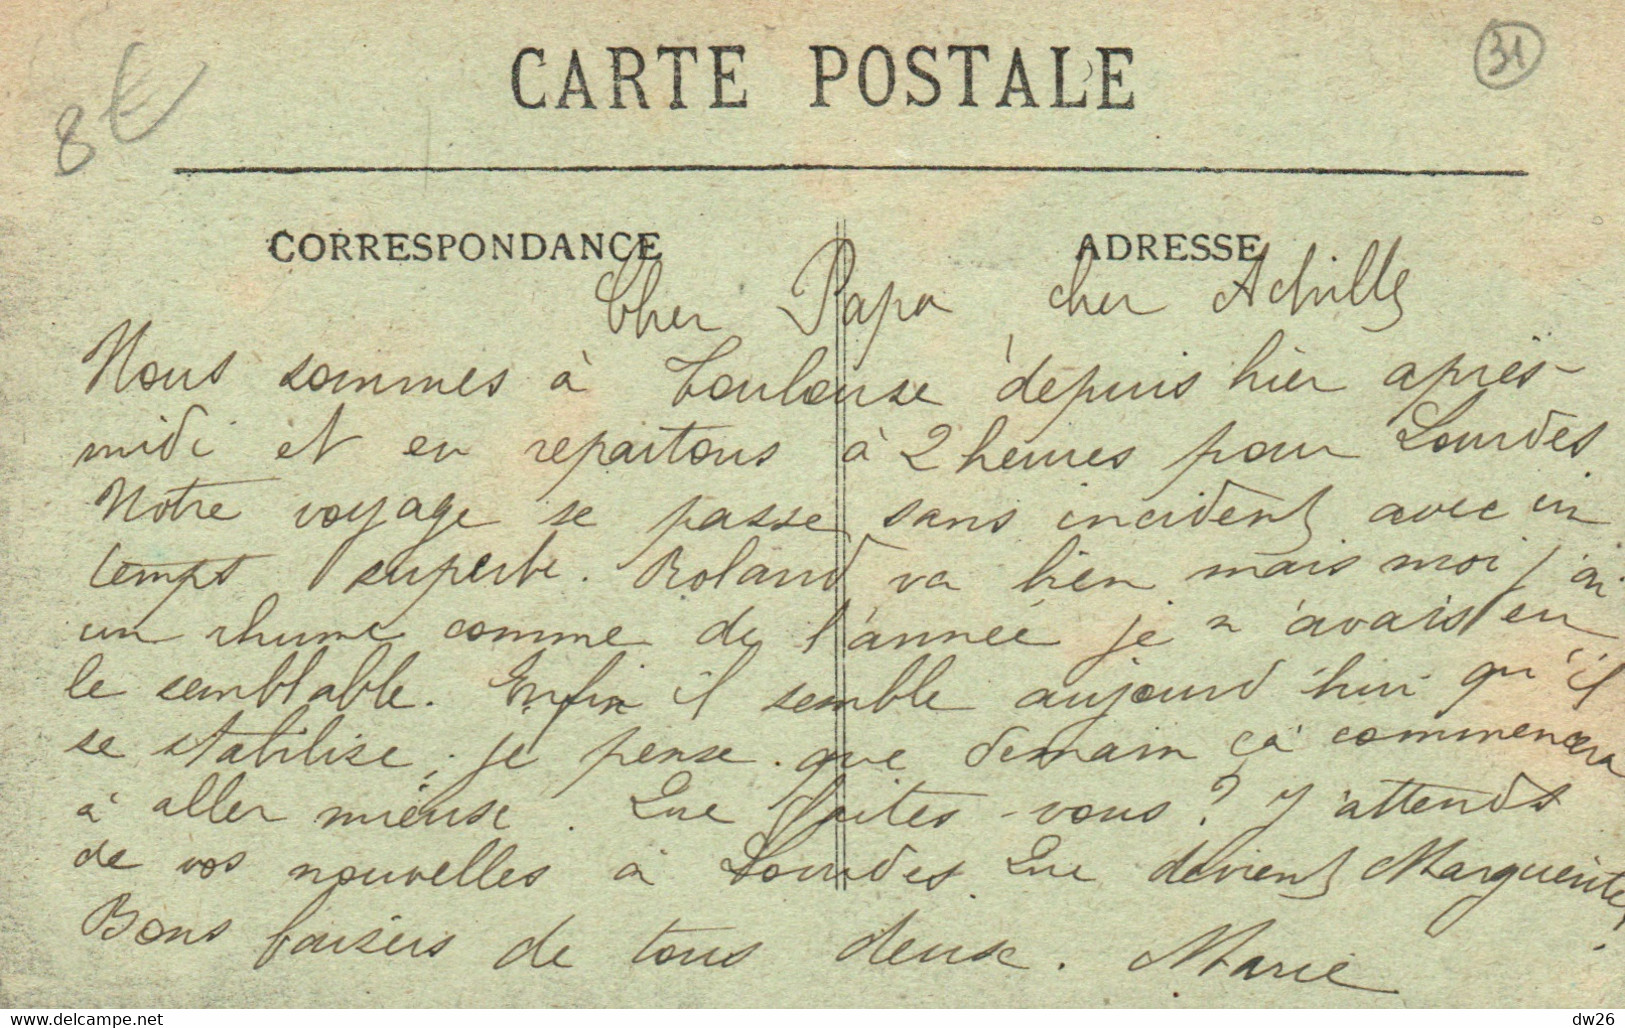 8€
31
CARTE POSTALE
CORRESPONDANCE
ADRESSE
Cher Papa cher Achille
Nous sommes à Toulouse depuis hier après-
midi et en repartons à 2 heures pour Lourdes.
Notre voyage se passe sans incident avec un
temps superbe. Roland va bien mais moi j'ai
un rhume comme de l'année je n'avais eu
le semblable. Enfin il semble aujourd'hui qu'il
se stabilise, je pense que demain ça commencera
à aller mieux. Que faites-vous? J'attends
de vos nouvelles à Lourdes. Que devient Marguerite?
Bons baisers de tous deux. Marie
www.delcampe.net
dw26